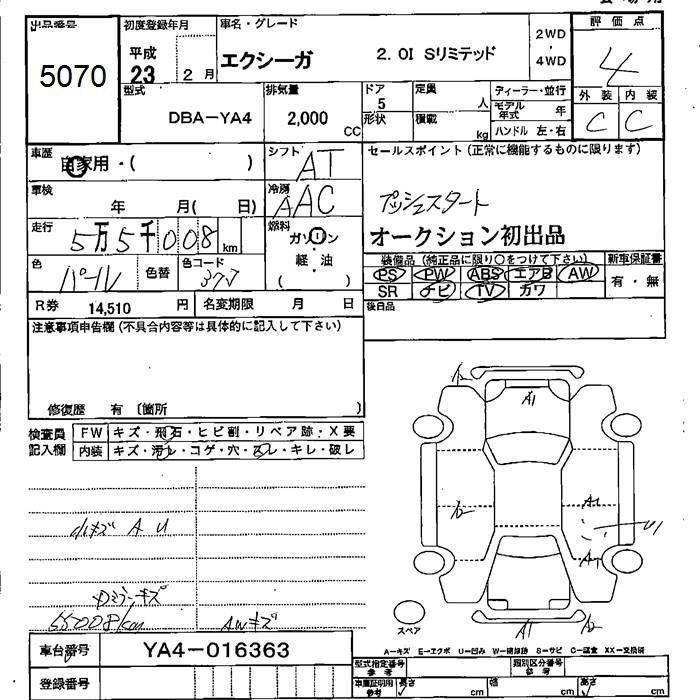 出品番号 初度登録年月 車名・グレード 2WD 評価点
5070 平成 23 2月 エクシーガ 2.0I Sリミテッド ・ 4WD 4
型式 排気量 ドア 定員 ディーラー・並行 外装 内装
DBA-YA4 2,000 CC 5 人 モデル年式 年 C C
形状 積載 kg ハンドル 左・右
車歴 自家用・( ) シフト AT セールスポイント(正常に機能するものに限ります)
車検 年 月( 日) 冷房 AAC プッシュスタート
走行 5万5千008 km 燃料 ガソリン オークション初出品
軽・油
( )
色 パール 色替 色コード 37J 装備品(純正品に限り○をつけて下さい) 新車保証書
PS PW ABS エアB AW 有・無
SR ナビ TV カワ
R券 14,510 円 名変期限 月 日 後日品
注意事項申告欄(不具合内容等は具体的に記入して下さい)
修復歴 有 〔箇所 〕
検査員 FW キズ・飛石・ヒビ割・リペア跡・X要
記入欄 内装 キズ・汚レ・コゲ・穴・スレ・キレ・破レ
A2 A1
A1
U1
小キズ A U
Dミラーキズ
55008km AWキズ
スペア A1 A2
A-キズ E-エクボ U-凹み W-補修跡 S-サビ C-腐食 XX-交換済
車台番号 YA4-016363 型式指定番号 参考 類別区分番号 参考
登録番号 車庫証明用 参考 長さ cm 幅 cm 高さ cm